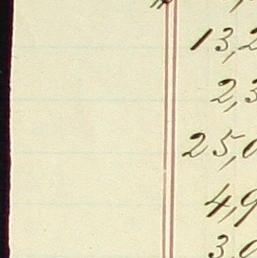 13,2
2,3
25,0
4,9
3,0